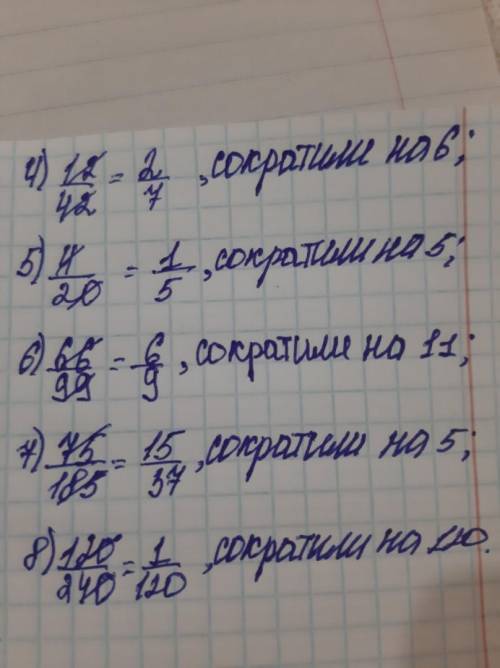 4) 12/42 = 2/7, сократили на 6;
5) 4/20 = 1/5, сократили на 5;
6) 66/99 = 6/9, сократили на 11;
7) 75/185 = 15/37, сократили на 5;
8) 120/240 = 1/120, сократили на